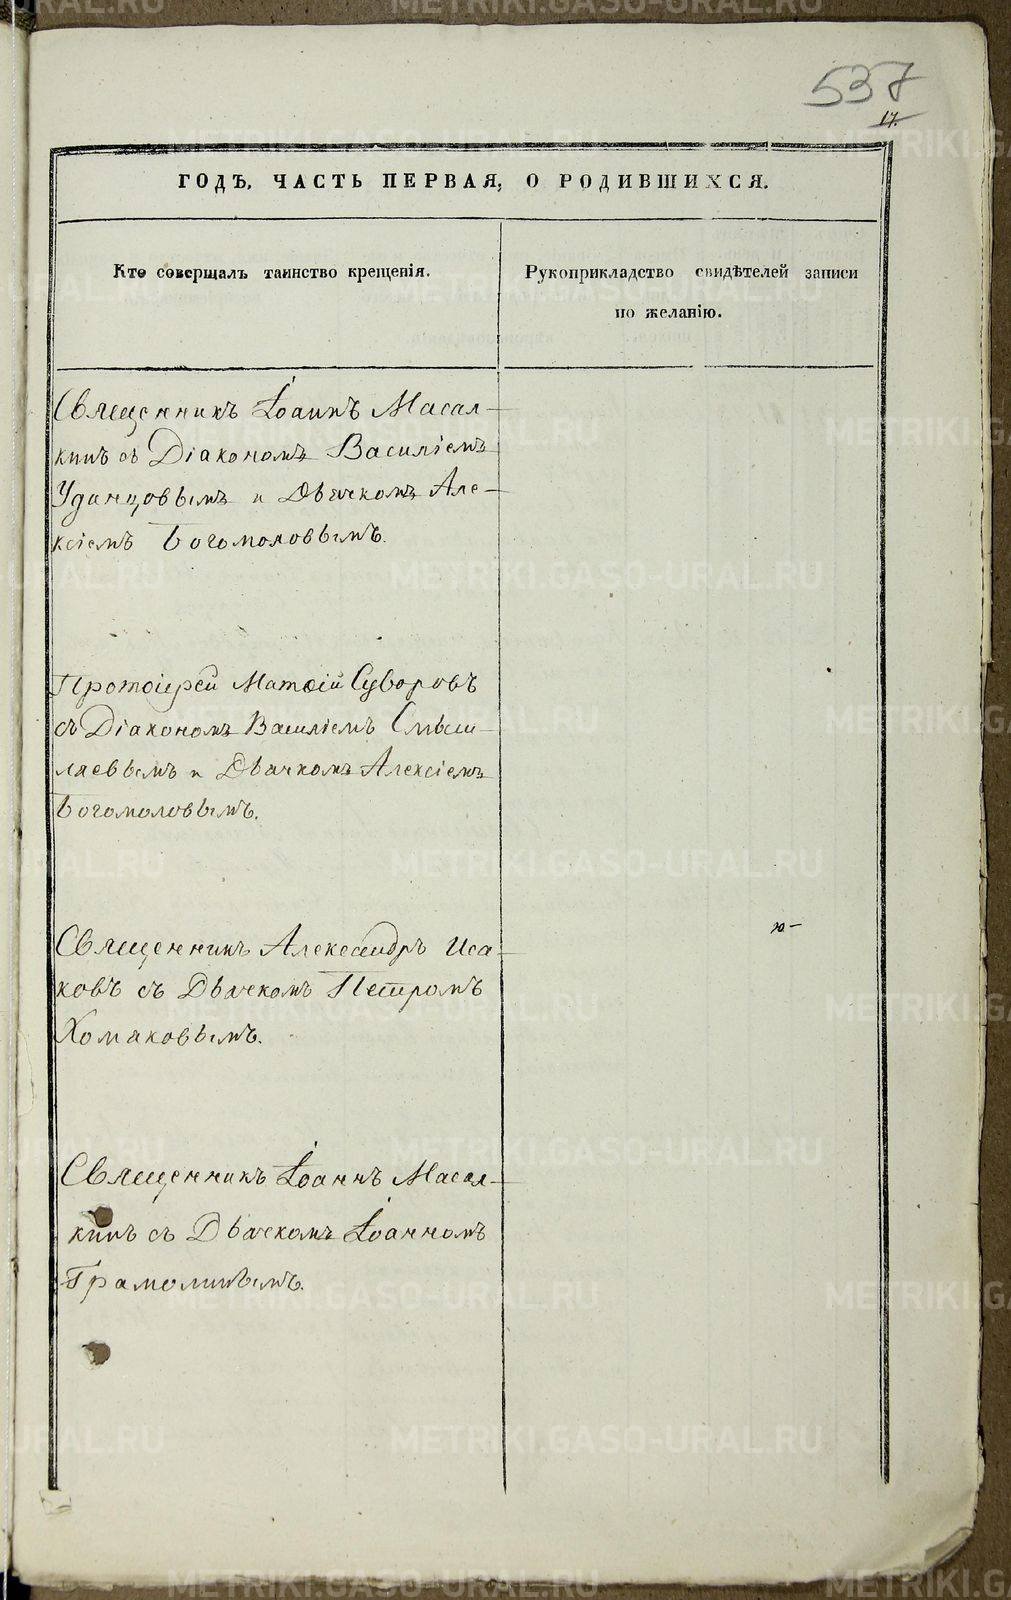 537
17.
ГОДѢ, ЧАСТЬ ПЕРВАЯ, О РОДИВШИХСЯ.
Кто совершалъ таинство крещенія.
Рукоприкладство свидѣтелей записи
по желанію.
Священникъ Іоаннъ Масал-
кинъ съ Діакономъ Василіемъ
Удинцовымъ и Дьячкомъ Але-
ксіемъ Богомоловымъ.
Протоіерей Матѳій Суворовъ
съ Діакономъ Василіемъ Смыш-
ляевымъ и Дьячкомъ Алексіемъ
Богомоловымъ.
Священникъ Александръ Иса-
ковъ съ Дьячкомъ Петромъ
Хомяковымъ.
Священникъ Іоаннъ Масал-
кинъ съ Дьячкомъ Іоанномъ
Грамолинымъ.
METRIKI.GASO-URAL.RU